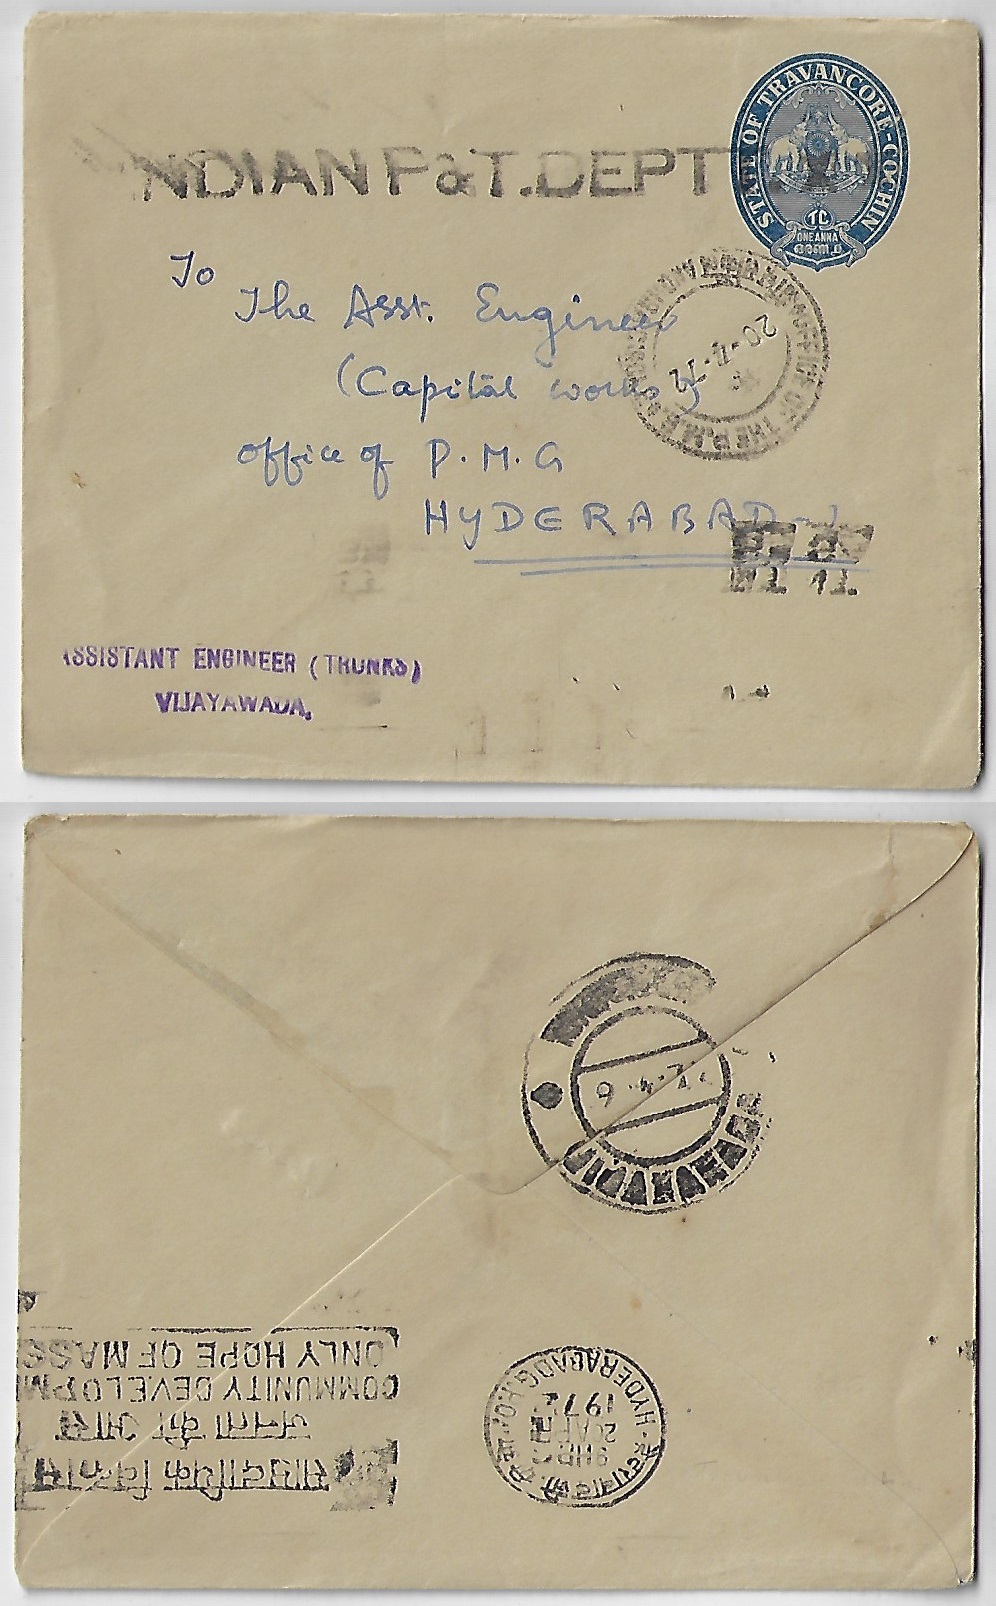 STATE OF TRAVANCORE-COCHIN
TC
ONE ANNA
NDIAN P&T. DEPT
To
The Asst. Engineer
(Capital works)
office of P.M.G
HYDERABAD-1
OFFICE OF THE P.M.G
20-4-72
SSISTANT ENGINEER (TRUNKS)
VIJAYAWADA.
ONLY HOPE OF MASS
COMMUNITY DEVELOPM
जनता की आस
सामुदायिक विकास
HYDERABAD G.P.O.
20 APR
1972